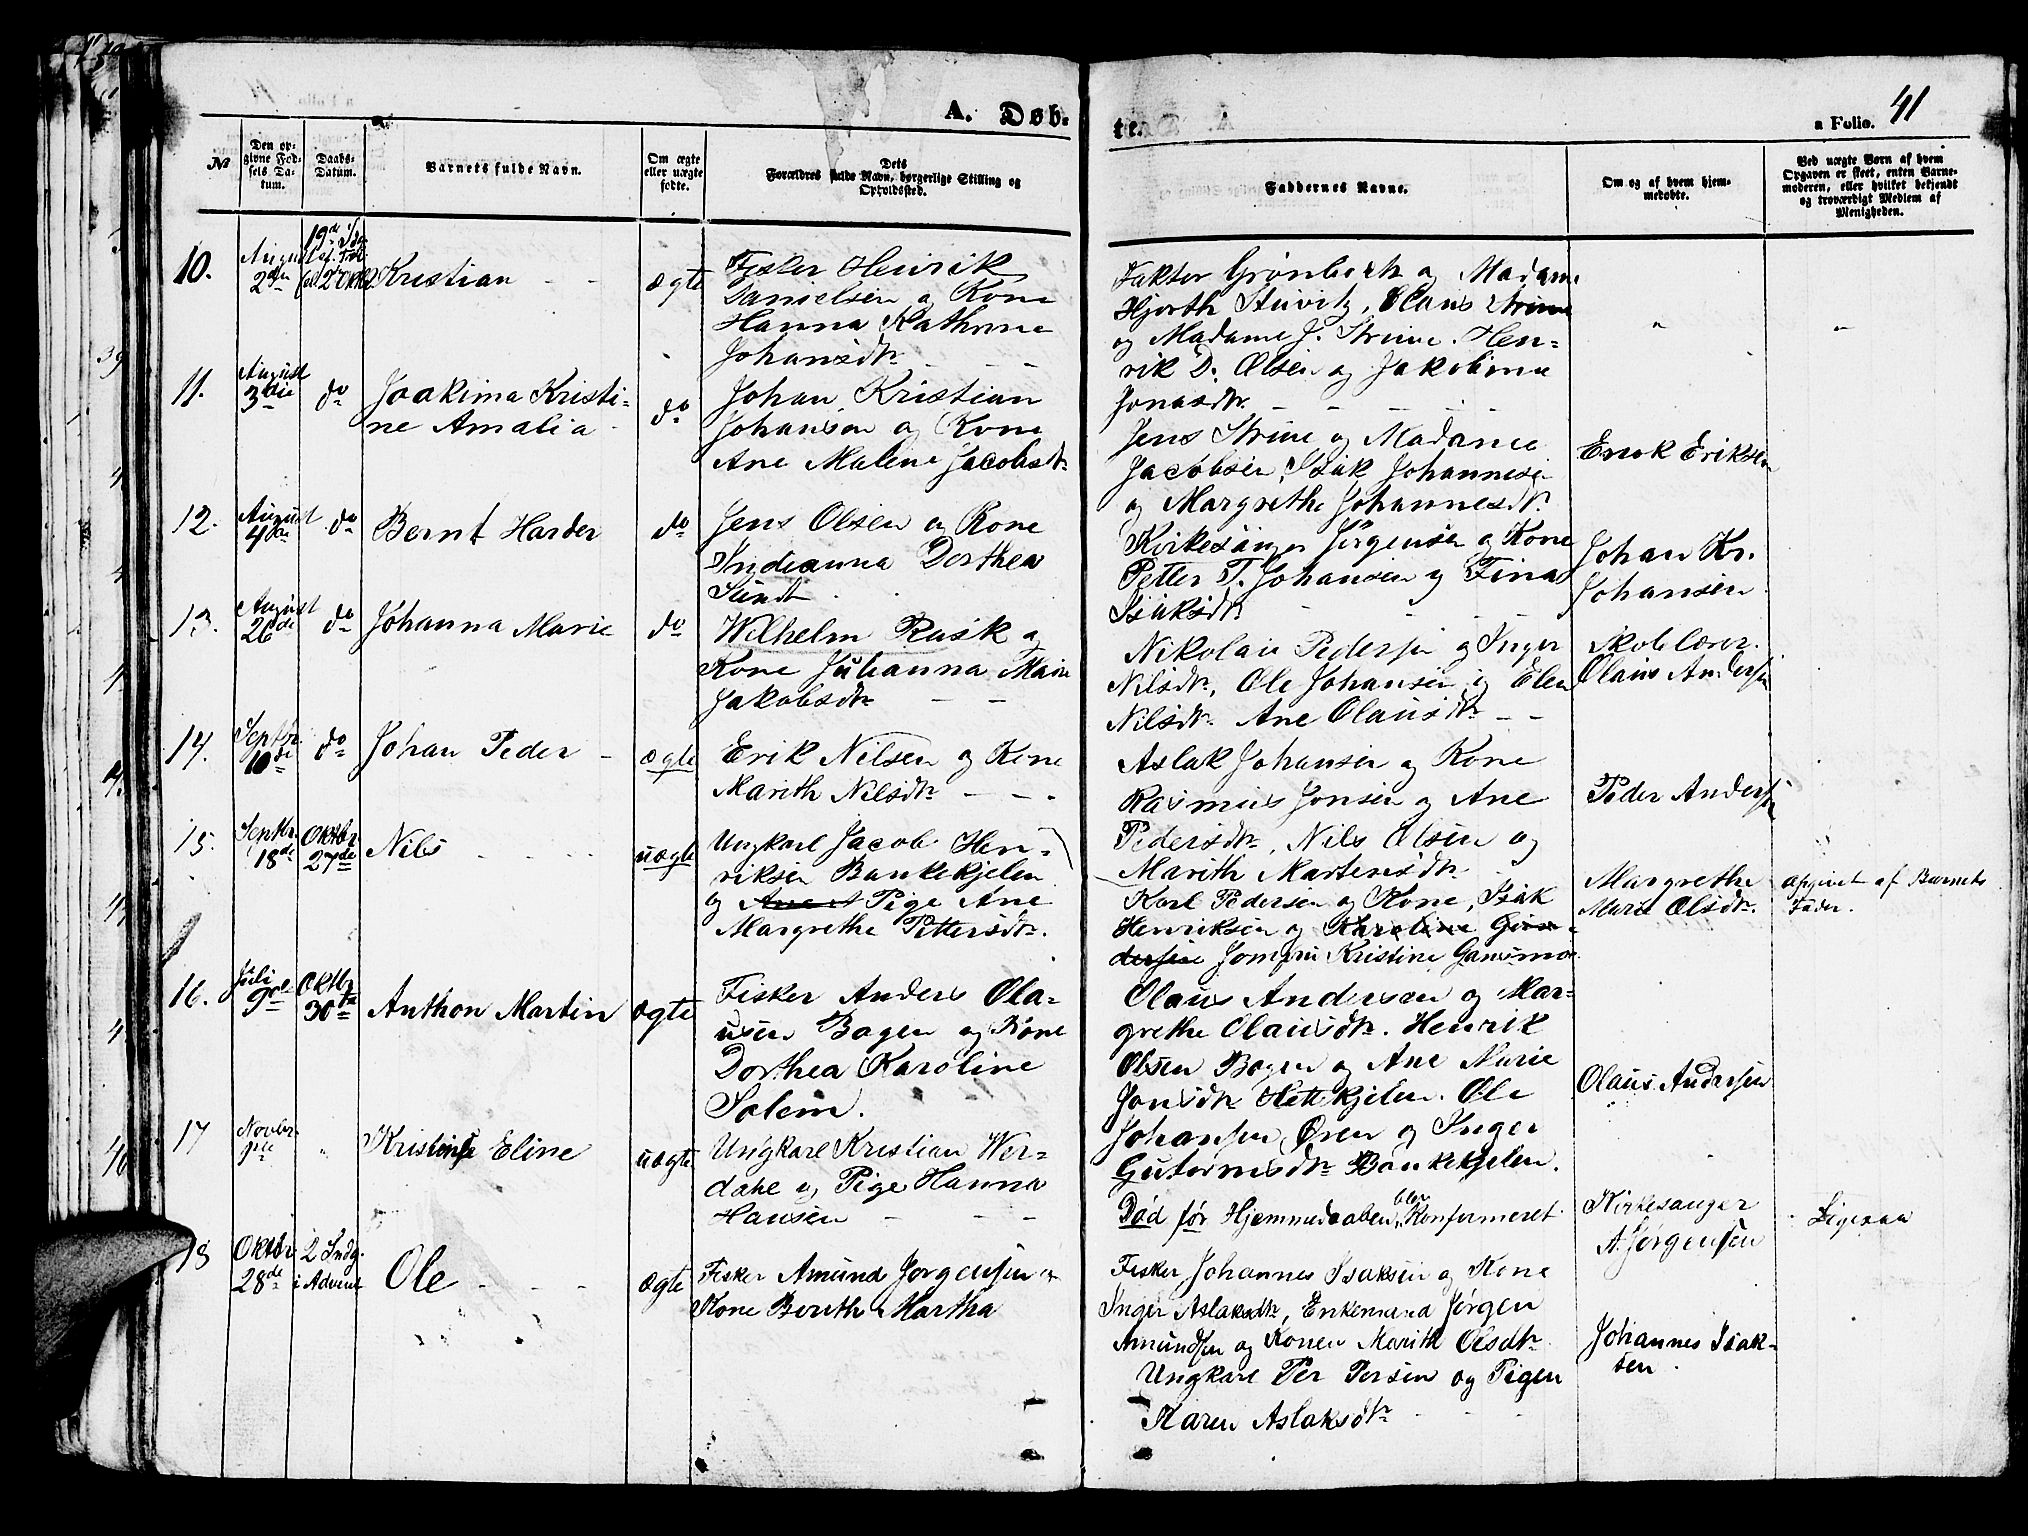 A. Døb-
te.
a Folio. 41
№
Den op-
givne Fød-
sels Da-
tum.
Daabs-
Datum.
Barnets fulde Navn.
Om ægte
eller uægte
fødte.
Dets
Forældres fulde Navn, borgerlige Stilling og
Opholdssted.
Faddernes Navne.
Om og af hvem hjem-
medøbte.
Ved uægte Børn af hvem
Opgaven er skeet, enten Barne-
moderen, eller hvilket bekjendt
og troværdigt Medlem af
Menigheden.
10.
August
2den
Kristian
ægte
Fisker Henrik
Danielsen og Kone
Hanna Kathrine
Johansdtr
Faktor Grønbech og Madame
Hjorth Stuvitz, Olaus Strime
og Madame J. Strime. Hen-
rik D. Olsen og Jakobina
Jonasdtr
11.
August
3die
do
Joakima Kristi-
ne Amalia
do
Johan Kristian
Johansen og Kone
Ane Malene Jacobsdtr
Jens Strime og Madame
Jacobsen, Isak Johannesen
og Margrethe Johannesdtr
Erik Eriksen
12.
August
4de
do
Bernt Harder
do
Jens Olsen og Kone
Indianna Dorthea
Sundt
Kirkesanger Jørgensen og Kone
Petter T. Johansen og Fina
Isaksdtr
Johan Kr.
Johansen
13.
August
26de
do
Johanna Marie
do
Wilhelm Rask og
Kone Julianna Marie
Jakobsdtr
Nikolai Pedersen og Inger
Nilsdtr, Ole Johansen og Elen
Nilsdtr Ane Olausdtr
Skolelærer
Olaus Andersen
14.
Septbr
10de
do
Johan Peder
ægte
Erik Nilsen og Kone
Marith Nilsdtr
Aslak Johansen og Kone
Rasmus Jonsen og Ane
Pedersdtr, Nils Olsen og
Marith Mortensdtr
Peder Andersen
15.
Septbr
18de
Oktbr
27de
Nils
uægte
Ungkarl Jacob Hen-
riksen Bankekjelen
og Pige Ane
Margrethe Pettersdtr.
Karl Pedersen og Kone, Isak
Henriksen og Karoline
Jomfru Kristine
Margrethe
Marie Olsdtr.
opgivet af Barnets
Fader.
16.
Juli
9de
Oktbr
30te
Anthon Martin
ægte
Fisker Anders Ola-
usen Bogen og Kone
Dorthea Karoline
Solem.
Olaus Andersen og Mar-
grethe Olausdtr. Henrik
Olsen Bogen og Ane Marie
Jonsdtr Hettekjelen. Ole
Johansen Øren og Inger
Gutormsdtr Bankekjelen.
Olaus Andersen
17
Novbr
Kristine Eline
uægte
Ungkarl Kristian Wer-
dahl og Pige Hanna
Hansen
Død før Hjemmedaaben blev Konfirmeret
Kirkesanger
A. Jørgensen
Ligesaa
18
Oktbr
28de
2 Sndg.
i Advent
Ole
ægte
Fisker Amund Jørgensen og
Kone Berith Martha
Fisker Johannes Isaksen og Kone
Inger Aslaksdtr, Enkemand Jørgen
Amundsen og Konen Marith Olsdtr
Ungkarl Per Persen og Pigen
Karen Aslaksdtr
Johannes Isak-
sen.